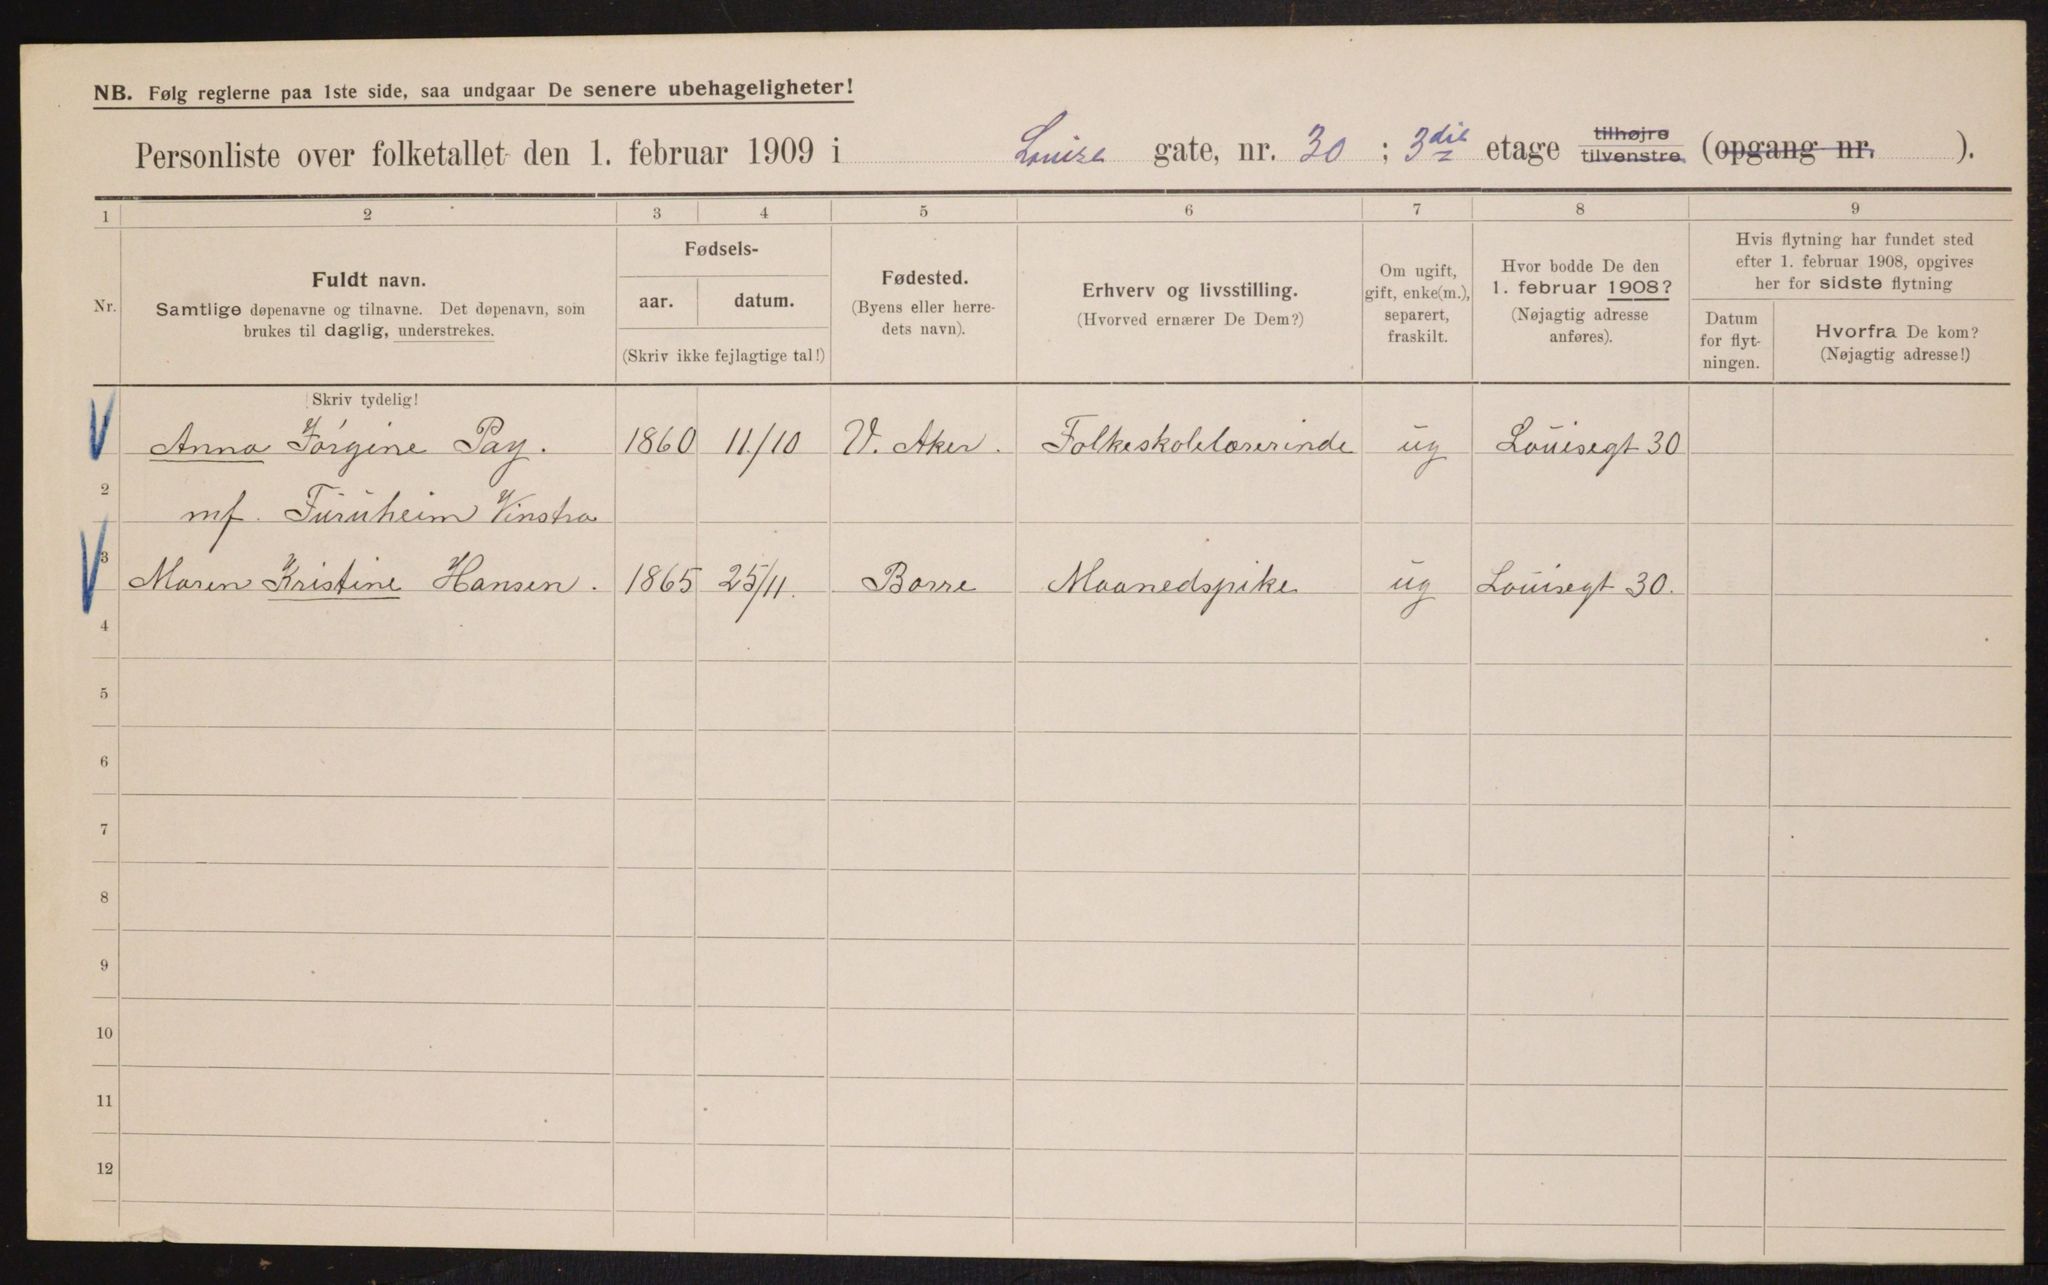 NB. Følg reglerne paa 1ste side, saa undgaar De senere ubehageligheter!
Personliste over folketallet den 1. februar 1909 i Louise gate, nr. 30 ; 3die etage tilhøjre tilvenstre (opgang nr. ).
1 2 3 4 5 6 7 8 9
Nr.
Fuldt navn.
Samtlige døpenavne og tilnavne. Det døpenavn, som
brukes til daglig, understrekes.
Fødsels-
aar. datum.
(Skriv ikke fejlagtige tal!)
Fødested.
(Byens eller herre-
dets navn).
Erhverv og livsstilling.
(Hvorved ernærer De Dem?)
Om ugift,
gift, enke(m.),
separert,
fraskilt.
Hvor bodde De den
1. februar 1908?
(Nøjagtig adresse
anføres).
Hvis flytning har fundet sted
efter 1. februar 1908, opgives
her for sidste flytning
Datum
for flyt-
ningen.
Hvorfra De kom?
(Nøjagtig adresse!)
Skriv tydelig!
Anna Jørgine Pay. 1860 11/10 V. Aker. Folkeskolelærerinde ug Louisegt 30
2
mf. Furuheim Vinstra
3 Maren Kristine Hansen. 1865 25/11. Borre Maanedspike ug Louisegt 30.
4
5
6
7
8
9
10
11
12